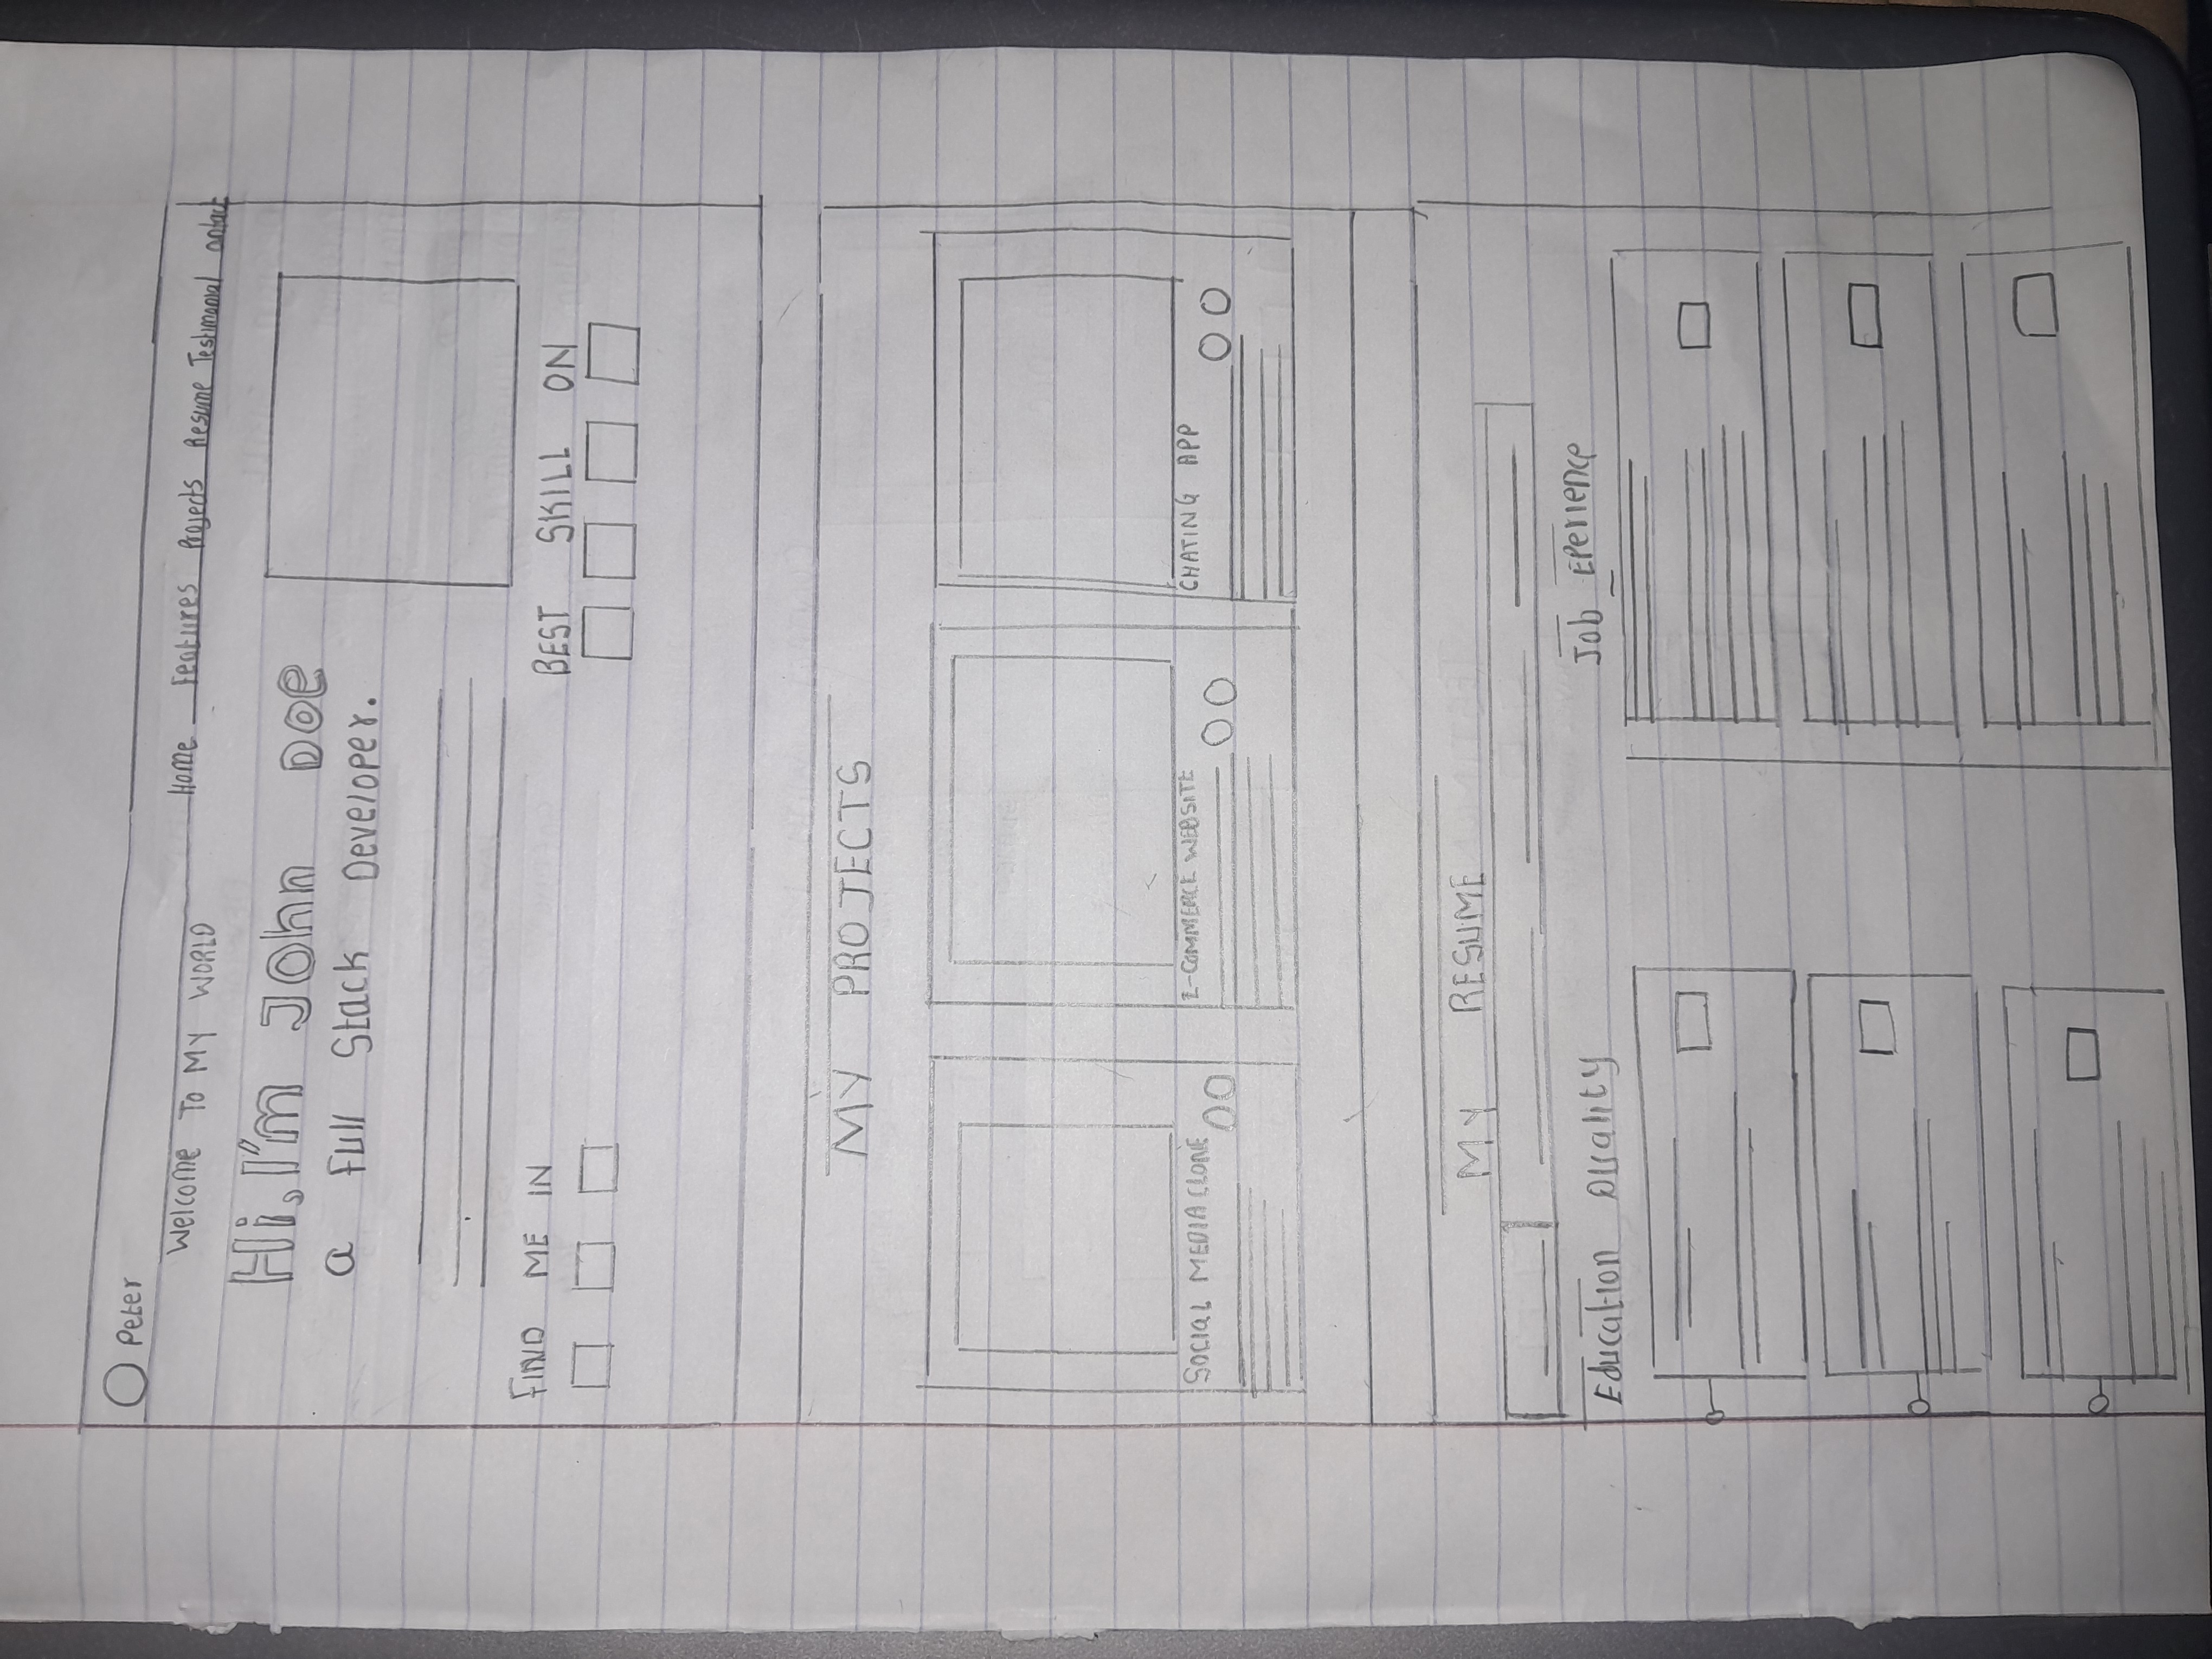 Peter
Home Features Projects Resume Testimonial ontact
Welcome To MY WORLD
Hi, I'm John Doe
a Full Stack Developer.
FIND ME IN
BEST SKILL ON
MY PROJECTS
SOCIAL MEDIA CLONE
E-COMMERCE WEBSITE
CHATING APP
MY RESUME
Education Quality
Job Eperience